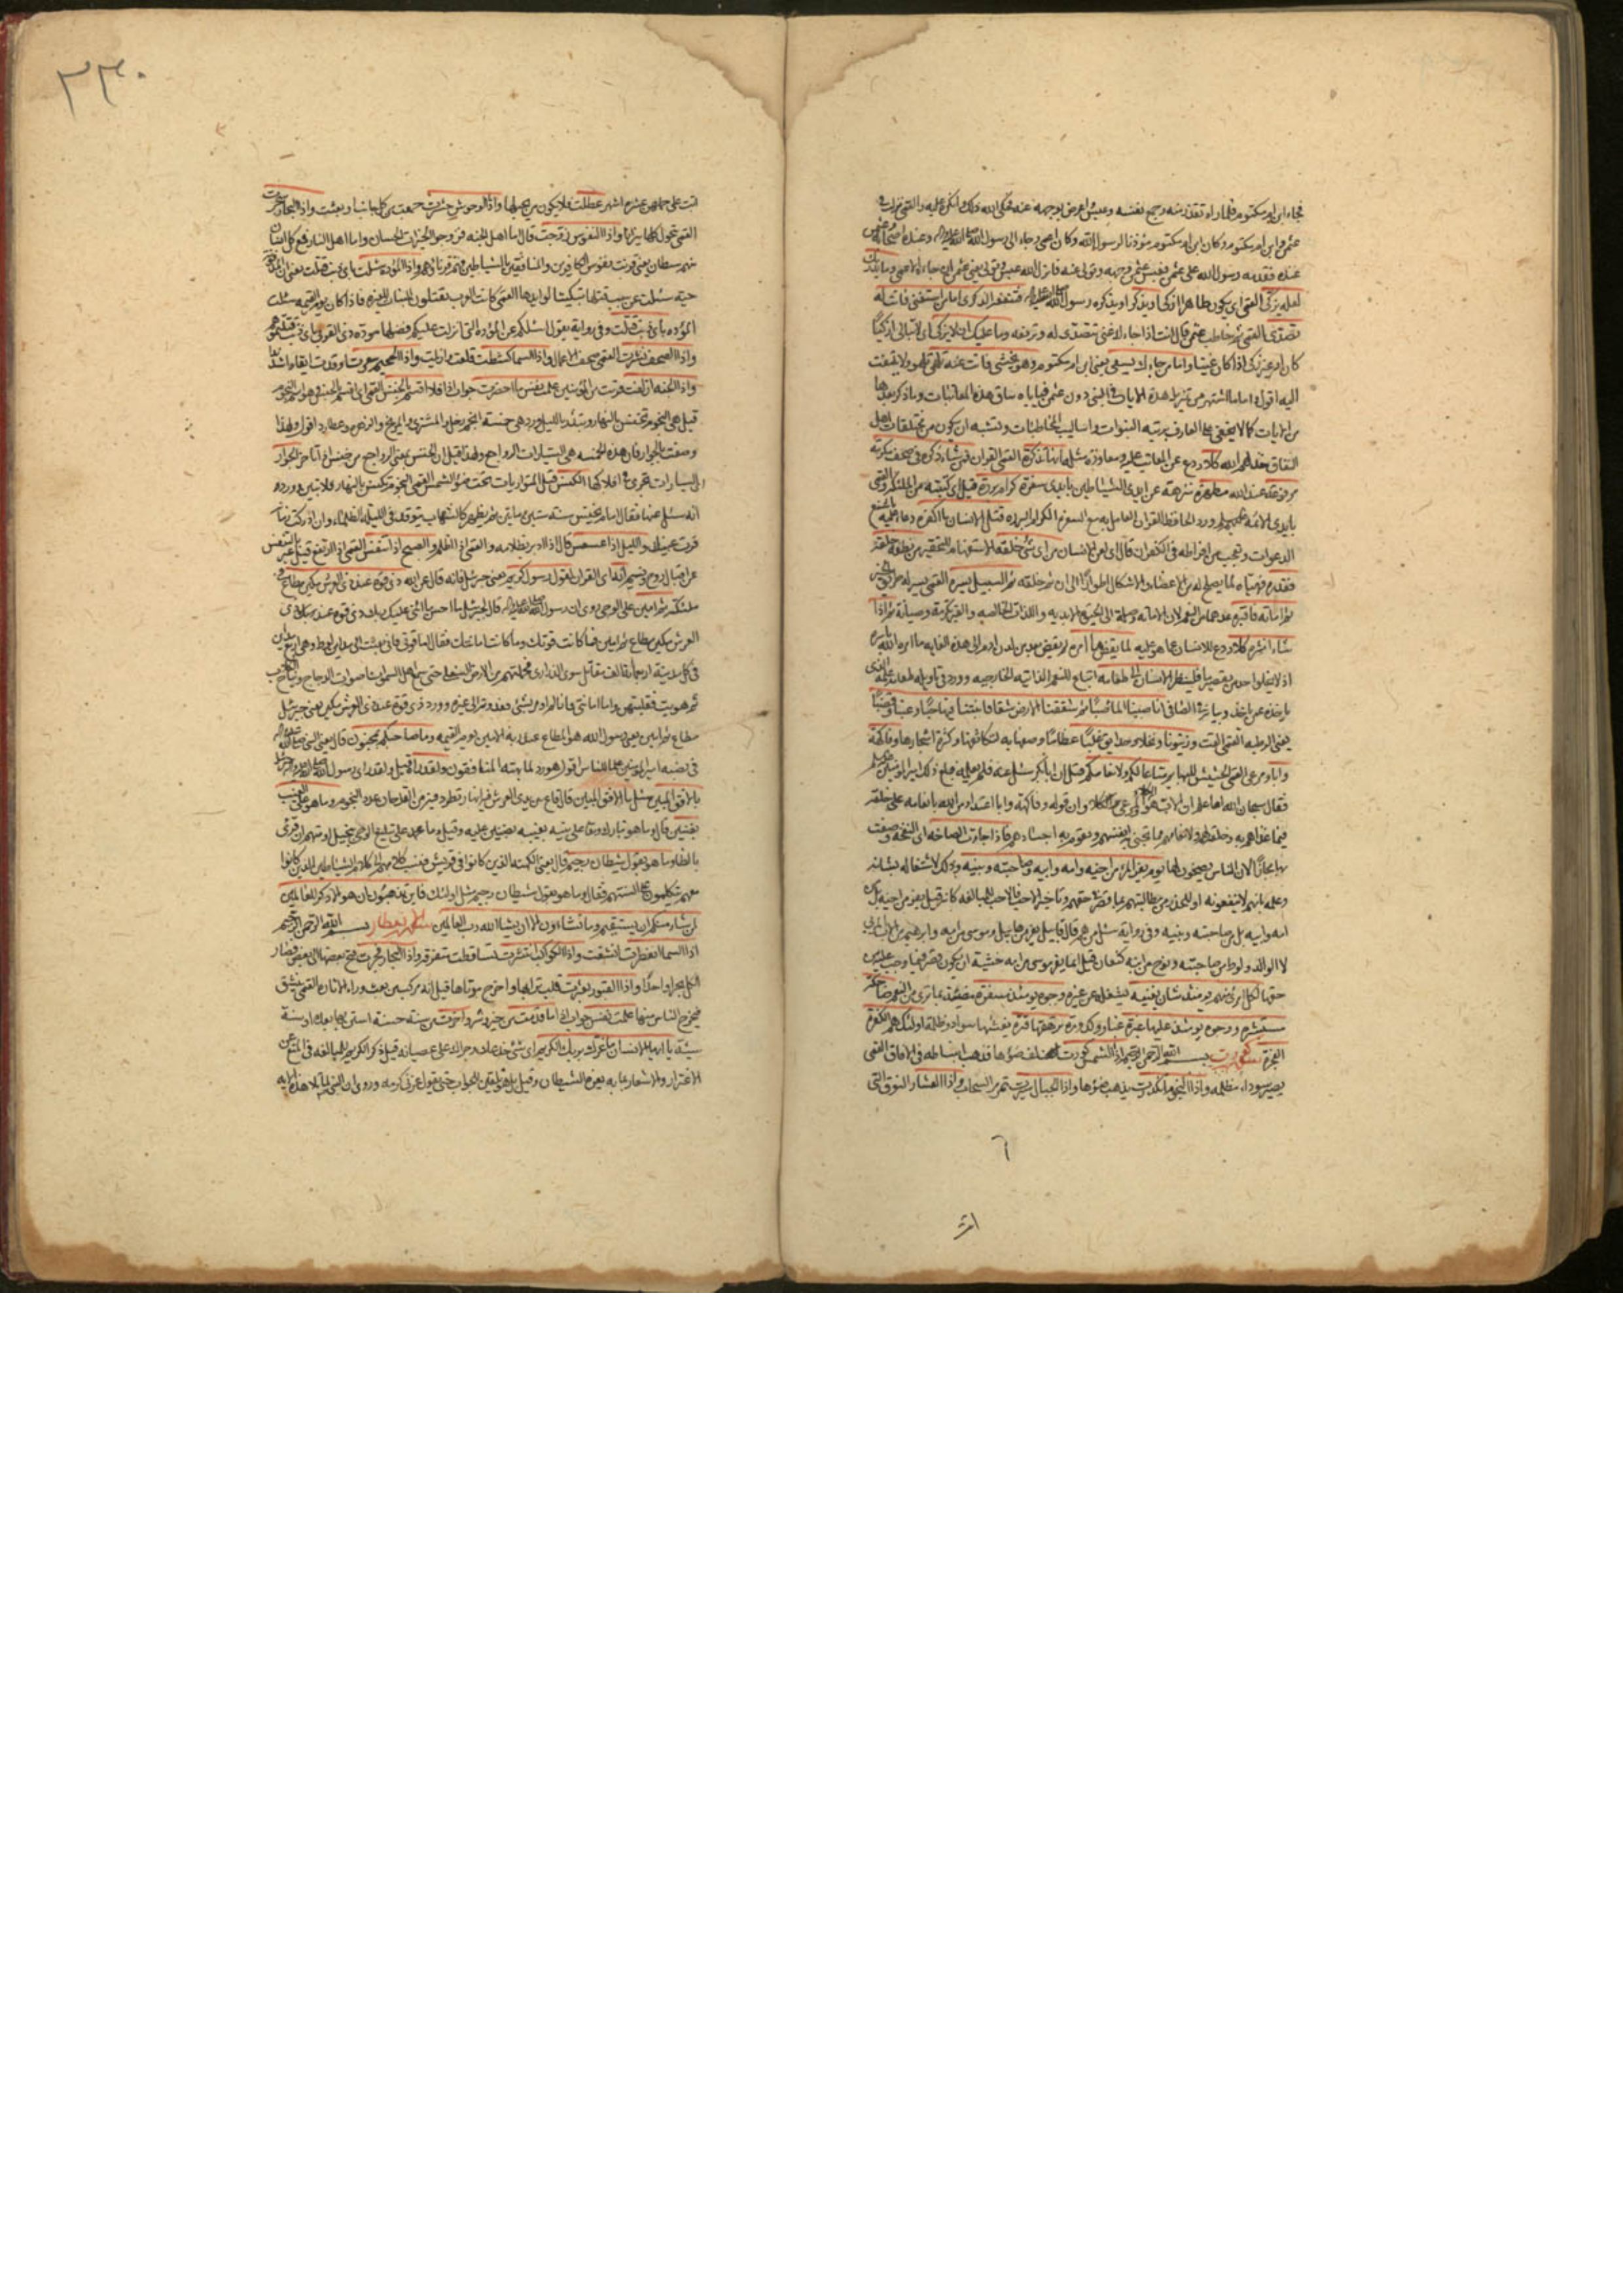 فجاء ابن ام مكتوم فلما راه تقذر منه وجمع نفسه وعبس واعرض بوجهه عنه فحكى الله ذلك وانكره عليه والقمي نزلت في
عثمن وابن ام مكتوم وكان ابن ام مكتوم مؤذنا لرسول الله وكان اعمى وجاء الى رسول الله صلى الله عليه واله وعنده اصحابه وعثمن
عنده فقدمه رسول الله على عثمن فعبس عثمن وجهه وتولى عنه فانزل الله عبس وتولى يعنى عثمن ان جاءه الاعمى وما يدريك
لعله يزكى القمي اى يكون طاهرا ازكى او يذكر او يذكره رسول الله صلى الله عليه واله فتنفعه الذكرى اما من استغنى فانت له
تصدى القمي ثم خاطب عثمن فقال انت اذا جاءك غنى تتصدى له وترفعه وما عليك الا يزكى اى لا تبالى ازكيا
كان او غير زكى اذا كان غنيا واما من جاءك يسعى يعنى ابن ام مكتوم وهو يخشى فانت عنه تلهى تلهو ولا يلتفت
اليه اقول واما ما اشتهر من تنزيل هذه الايات في النبي دون عثمن فيا باه سياق هذه المعاتبات وما ذكر بعدها
من الايات كما لا يخفى على العارف برتبة النبوات واساليب المخاطبات ويشبه ان يكون من مختلقات اهل
النفاق خذلهم الله كلا ردع عن المعاتب عليه ومعاودة مثله انها تذكرة القمي القران فمن شاء ذكره في صحف مكرمة
مرفوعة عند الله مطهرة منزهة عن ايدى الشياطين بايدى سفرة كرام بررة قيل اى كتبة من الملئكة والقمي
بايدى الائمة وورد الحافظ للقران العامل به مع السفرة الكرام البررة قتل الانسان ما اكفره دعا عليه باشنع
الدعوات وتعجب من افراطه في الكفران قال اى لعن الانسان من اى شئ خلقه الاستفهام للتحقير من نطفة خلقه
فقدره فهياه لما يصلح له من الاعضاء والاشكال اطوارا الى ان تم خلقه ثم السبيل يسره القمي يسر له طريق الخير
ثم اماته فاقبره عدهما من النعم لان الاماتة وصلة الى الحيوة الابدية واللذات الخالصة والقبر تكرمة وصيانة ثم اذا
شاء انشره كلا ردع للانسان عما هو عليه لما يقض ما امره لم يقض بعد من لدن ادم الى هذه الغاية ما امره الله باسره
اذ لا يخلو احد من تقصير ما فلينظر الانسان الى طعامه اتباع للنعم الذاتية الخارجية وورد في تاويله طعامه علمه الذى
ياخذه عمن ياخذه وبيانه في الصافى انا صببنا الماء صبا ثم شققنا الارض شقا فانبتنا فيها حبا وعنبا وقضبا
يعنى الرطبة القمي القت وزيتونا ونخلا وحدائق غلبا عظاما وصفها به لتكاثفها وكثرة اشجارها وفاكهة
وابا ومرعى القمي الحشيش للبهايم متاعا لكم ولانعامكم قيل ان ابا بكر سئل عنه فلم يعلمه فبلغ ذلك امير المؤمنين عليه السلم
فقال سبحان الله اما علم ان الاب هو الكلاء والمرعى وان قوله وفاكهة وابا اعتداد من الله بانعامه على خلقه
فيما غذاهم به وخلقه لهم ولانعامهم مما تحيى به انفسهم وتقوم به اجسادهم فاذا جاءت الصاخة اى النفخة وصفت
بها مجازا لان الناس يصيخون لها يوم يفر المرء من اخيه وامه وابيه وصاحبته وبنيه وذلك لاشتغاله بشانه
وعلمه بانهم لا ينفعونه او للحذر من مطالبتهم بما قصر في حقهم وتاخير الاحب فالاحب للمبالغة كانه قيل يفر من اخيه بل من
امه وابيه بل من صاحبته وبنيه وفي رواية سئل من هم قال قابيل يفر من هابيل وموسى من امه وابراهيم من الاب المربى
لا الوالد ولوط من صاحبته ونوح من ابنه كنعان قيل انما يفر موسى من امه خشية ان يكون قصر فيما وجب عليه من
حقها لكل امرئ منهم يومئذ شان يغنيه يشغله عن غيره وجوه يومئذ مسفرة مضيئة بما ترى من النعم ضاحكة
مستبشرة ووجوه يومئذ عليها غبرة غبار وكدورة ترهقها قترة يغشيها سواد وظلمة اولئك هم الكفرة
الفجرة سورة كورت بسم الله الرحمن الرحيم اذا الشمس كورت لفت ضوؤها فذهب انبساطه في الافاق القمي
يصير سوداء مظلمة واذا النجوم انكدرت يذهب ضوؤها واذا الجبال سيرت تمر مر السحاب واذا العشار النوق التى
٦
اتت
٣٣٠
اتت على حملهن عشرة اشهر عطلت فلا يكون من يحلبها واذا الوحوش حشرت جمعت من كل جانب او بعثت واذا البحار سجرت
القمي تحول كلها نيرانا واذا النفوس زوجت قال اما اهل الجنة فزوجوا الخيرات الحسان واما اهل النار فمع كل انسان
منهم شيطان يعنى قرنت نفوس الكافرين والمنافقين بالشياطين فهم قرناؤهم واذا الموؤدة سئلت باى ذنب قتلت يعنى المدفونة
حية سئلت عن سبب قتلها تبكيتا لوايدها القمي كانت العرب يقتلون البنات للغيرة فاذا كان يوم القيمة سئلت
الموؤدة باى ذنب قتلت وفي رواية يقول اسئلكم عن الموؤدة التى انزلت عليكم فضلها مودة ذى القربى باى ذنب قتلتموهم
واذا الصحف نشرت القمي صحف الاعمال واذا السماء كشطت قلعت وازيلت واذا الجحيم سعرت اوقدت ايقادا شديدا
واذا الجنة ازلفت قربت من المؤمنين علمت نفس ما احضرت جواب اذا فلا اقسم بالخنس القمي اى اقسم بالخنس وهو اسم النجوم
قيل هى النجوم تخنس بالنهار وتبدو بالليل وورد هى خمسة انجم زحل والمشترى والمريخ والزهرة وعطارد اقول ولهذا
وصفت بالجوار فان هذه الخمسة هى السيارات الرواجع ولهذا قيل ان الخنس بمعنى الرواجع من خنس اذا تاخر الجوار
اى السيارات تجرى في افلاكها الكنس قيل المتواريات تحت ضوء الشمس القمي النجوم تكنس بالنهار فلا تبين وورد
انه سئل عنها فقال امام يخنس سنة ستين وماتين ثم يظهر كالشهاب يتوقد في الليلة الظلماء وان ادركت زمانه
قرت عينك والليل اذا عسعس قال اذا ادبر بظلامه والقمي اذا اظلم والصبح اذا تنفس القمي اذا ارتفع قيل عبر بالتنفس
عن اقبال روح ونسيم انه اى القران لقول رسول كريم يعنى جبرئيل فانه قال عن الله ذى قوة عند ذى العرش مكين مطاع في
ملئكته ثم امين على الوحى روى ان رسول الله صلى الله عليه واله قال لجبرئيل ما احسن ما اثنى عليك ربك ذى قوة عند ذى
العرش مكين مطاع ثم امين فما كانت قوتك وما كانت امانتك فقال اما قوتى فانى بعثت الى مداين لوط وهى اربع مداين
في كل مدينة اربعمائة الف مقاتل سوى الذرارى فحملتهم من الارض السفلى حتى سمع اهل السموات اصوات الدجاج ونباح الكلاب
ثم هويت فقلبتهن واما امانتى فانى لم اومر بشئ فعدوته الى غيره وورد ذى قوة عند ذى العرش مكين يعنى جبرئيل
مطاع ثم امين يعنى رسول الله هو المطاع عند ربه الامين يوم القيمة وما صاحبكم بمجنون قال يعنى النبي صلى الله عليه واله
في نصبه امير المؤمنين علما للناس اقول هو رد لما بهته المنافقون ولقد راه قيل ولقد راى رسول الله صلى الله عليه واله جبرئيل
بالافق المبين سئل ما الافق المبين قال قاع بين يدى العرش فيه انهار تطرد فيه من القدحان عدد النجوم وما هو على الغيب
بضنين قال وما هو تبارك وتعالى على نبيه بغيبه بضنين عليه وقيل وما محمد على تبليغ الوحى ببخيل او متهم ان قرئ
بالظاء وما هو بقول شيطان رجيم قال يعنى الكهنة الذين كانوا في قريش فنسب كلامهم الى كلام الشياطين الذين كانوا
معهم يتكلمون على السنتهم فقال وما هو بقول شيطان رجيم مثل اولئك فاين تذهبون ان هو الا ذكر للعالمين
لمن شاء منكم ان يستقيم وما تشاءون الا ان يشاء الله رب العالمين سورة انفطار بسم الله الرحمن الرحيم
اذا السماء انفطرت انشقت واذا الكواكب انتثرت تساقطت متفرقة واذا البحار فجرت فتح بعضها الى بعض فصار
الكل بحرا واحدا واذا القبور بعثرت قلب ترابها واخرج موتاها قيل انه مركب من بعث وراء الاثارة القمي تنشق
فيخرج الناس منها علمت نفس جواب اذا ما قدمت من خير وشر واخرت من سنة حسنة استن بها بعده او سنة
سيئة يا ايها الانسان ما غرك بربك الكريم اى شئ خدعك وجراك على عصيانه قيل ذكر الكريم للمبالغة في المنع عن
الاغترار والاشعار بما به يغره الشيطان وقيل بل هو تلقين للجواب حتى يقول غرنى كرمه وروى ان النبي لما تلا هذه الاية